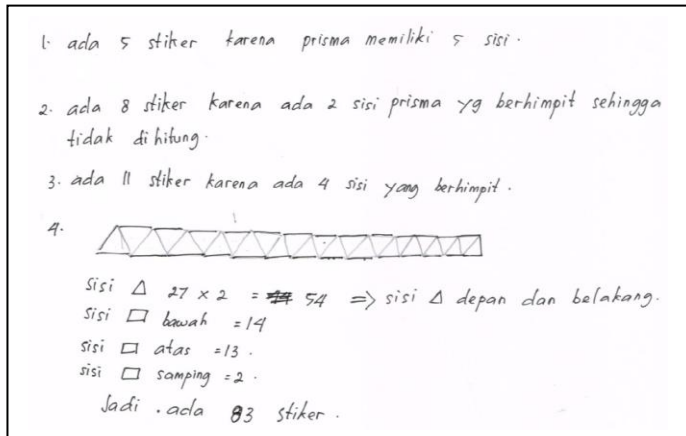 1. ada 5 stiker karena prisma memiliki 5 sisi.
2. ada 8 stiker karena ada 2 sisi prisma yg berhimpit sehingga
tidak dihitung.
3. ada 11 stiker karena ada 4 sisi yang berhimpit.
4.
sisi △ 27 x 2 = 54 => sisi △ depan dan belakang.
sisi □ bawah = 14
sisi □ atas = 13.
sisi □ samping = 2.
Jadi. ada 83 stiker.